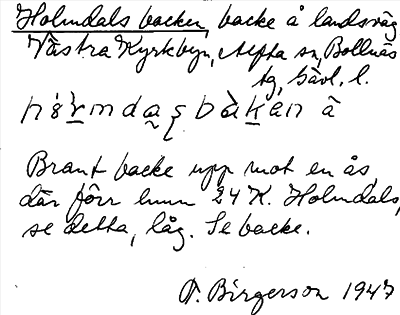 Holmdals backen, backe å landsväg
Västra Kyrkbyn, Alfta sn, Bollnäs
tg, Gävl. l.
backen å
Brant backe upp mot en ås,
där förr hem 24 K. Holmdals,
se detta, låg. Se backe.
T. Birgerson 1947